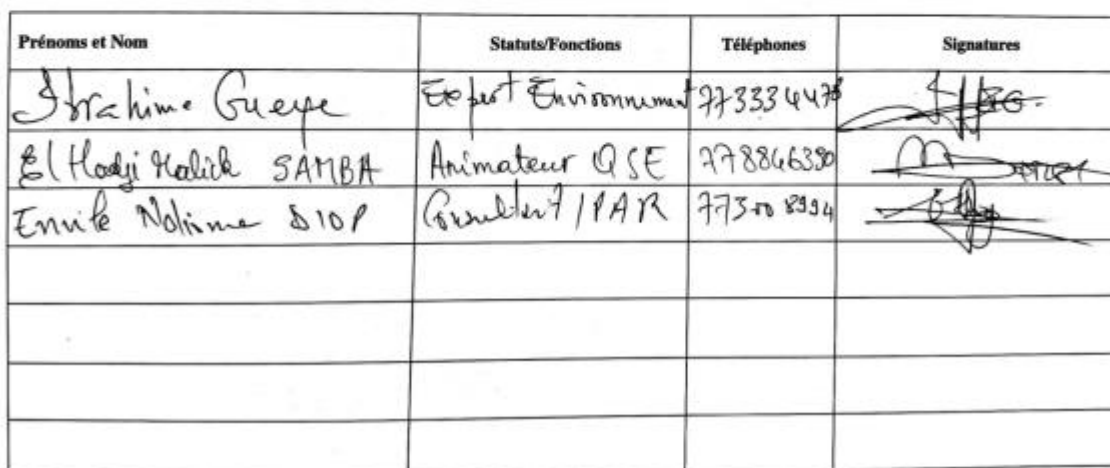 Prénoms et Nom Statuts/Fonctions Téléphones Signatures
Ibrahima Gueye Expert Environnement 773334478
El Hadji Malick SAMBA Animateur QSE 778846390
DIOP Consultant/PAR 773008994